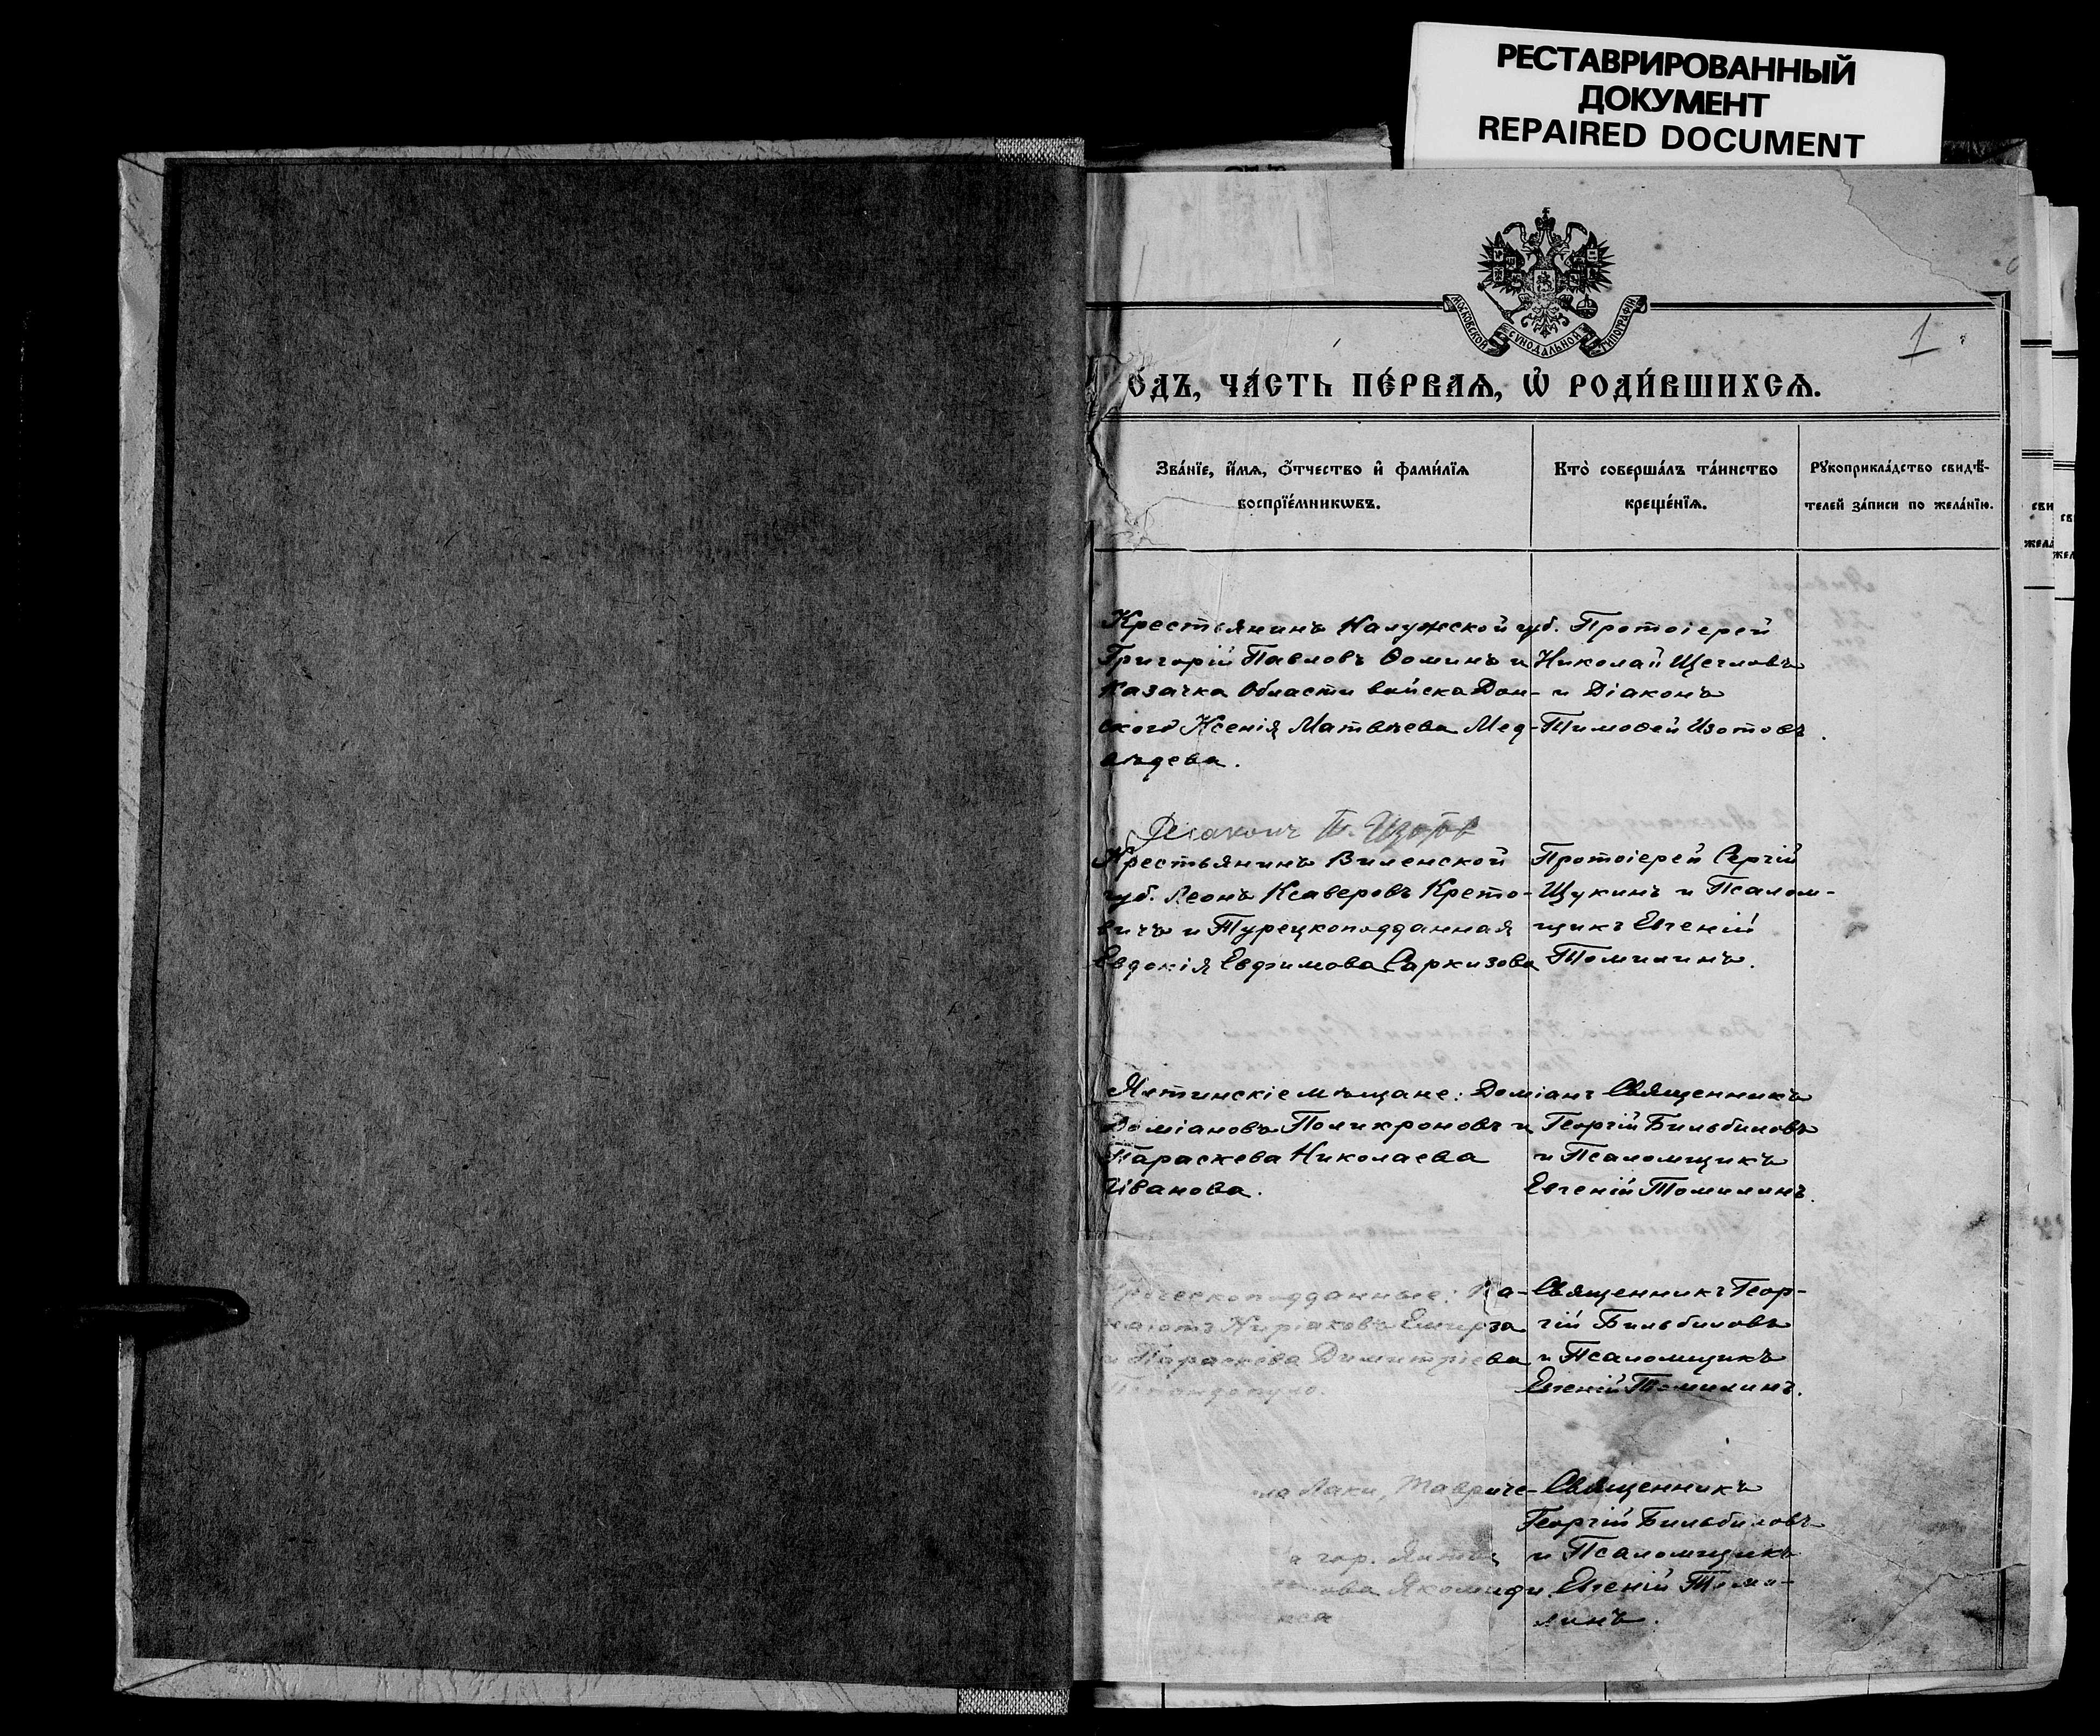 РЕСТАВРИРОВАННЫЙ
ДОКУМЕНТ
REPAIRED DOCUMENT
МОСКОВСКОЙ СѴНОДАЛЬНОЙ ТИПОГРАФІИ
1
О́ДЪ, ЧА́СТЬ ПЕ́РВАѦ, Ѡ҆ РОДИ́ВШИХСѦ.
Зва́нїе, и҆́мѧ, ѻ҆́тчество и҆ фами́лїѧ
воспрїе́мникѡвъ.
Кто̀ соверша́лъ та́инство
креще́нїѧ.
Рꙋкоприкла́дство свидѣ́-
телей за́писи по жела́нїю.
Крестьянинъ Калужской губ.
Григорій Павловъ Ѳоминъ и
казачка Области войска Дон-
ского Ксенія Матвѣева Мед-
вѣдева.
Протоіерей
Николай Щегловъ
и Діаконъ
Тимоѳей Изотовъ
Діаконъ Т. Изотов
Крестьянинъ Виленской
губ. Леонъ Ксаверовъ Крето-
вичъ и Турецкоподданная
Евдокія Евфимова Саркизова
Протоіерей Сергій
Щукинъ и Псалом-
щикъ Евгеній
Томилинъ.
Ялтинскіе мѣщане: Доміанъ
Доміановъ Поликроновъ и
Параскева Николаева
Иванова.
Священникъ
Георгій Бильбиловъ
и Псаломщикъ
Евгеній Томилинъ.
Греческоподданные: Па-
наіотъ Киріаковъ
и Параскева Димитріева
Священникъ Геор-
гій Бильбиловъ
и Псаломщикъ
Евгеній Томилинъ.
Лаки, Тавриче-
гор. Ялты
Якомиди.
Священникъ
Георгій Бильбиловъ
и Псаломщикъ
Евгеній Томи-
линъ.